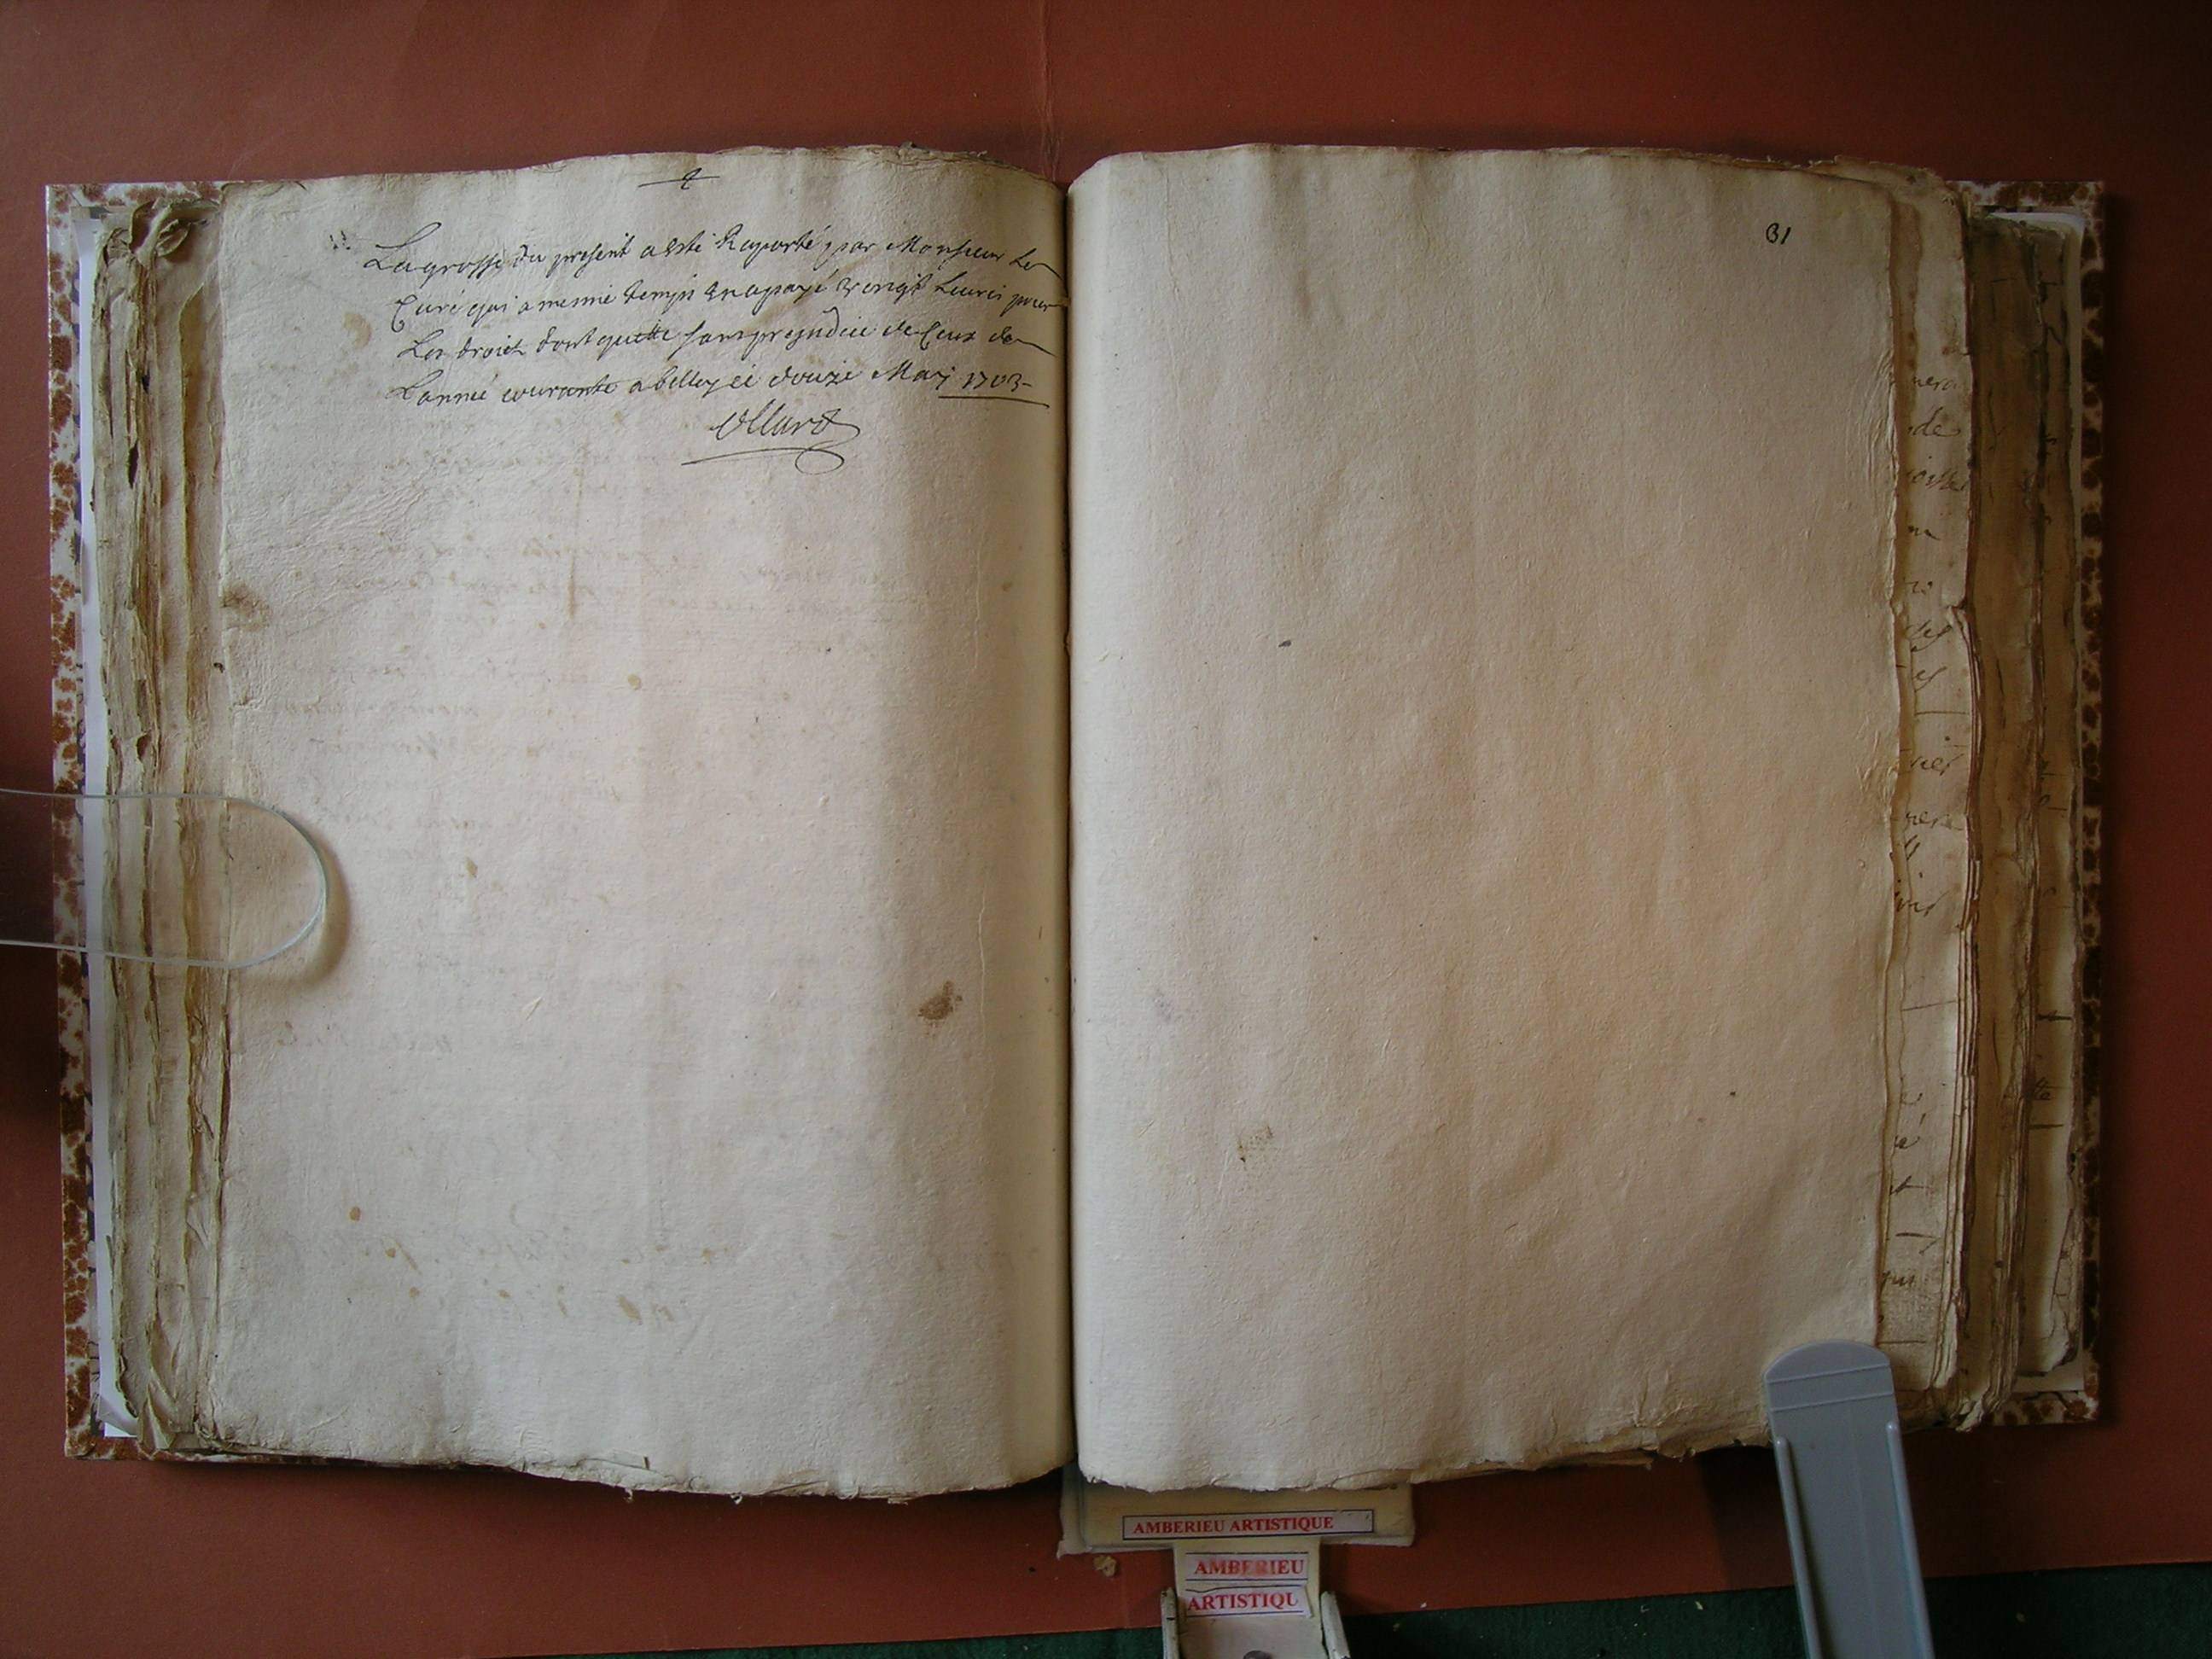 La grosse du present a esté Raporté par Monsieur Le
Curé qui a mesme temps en a payé vingt Livres pour
Les droict dont quitte sans prejudice de Ceux de
L'année courante a belley ce douze May 1703
31
AMBERIEU ARTISTIQUE
AMBERIEU
ARTISTIQU